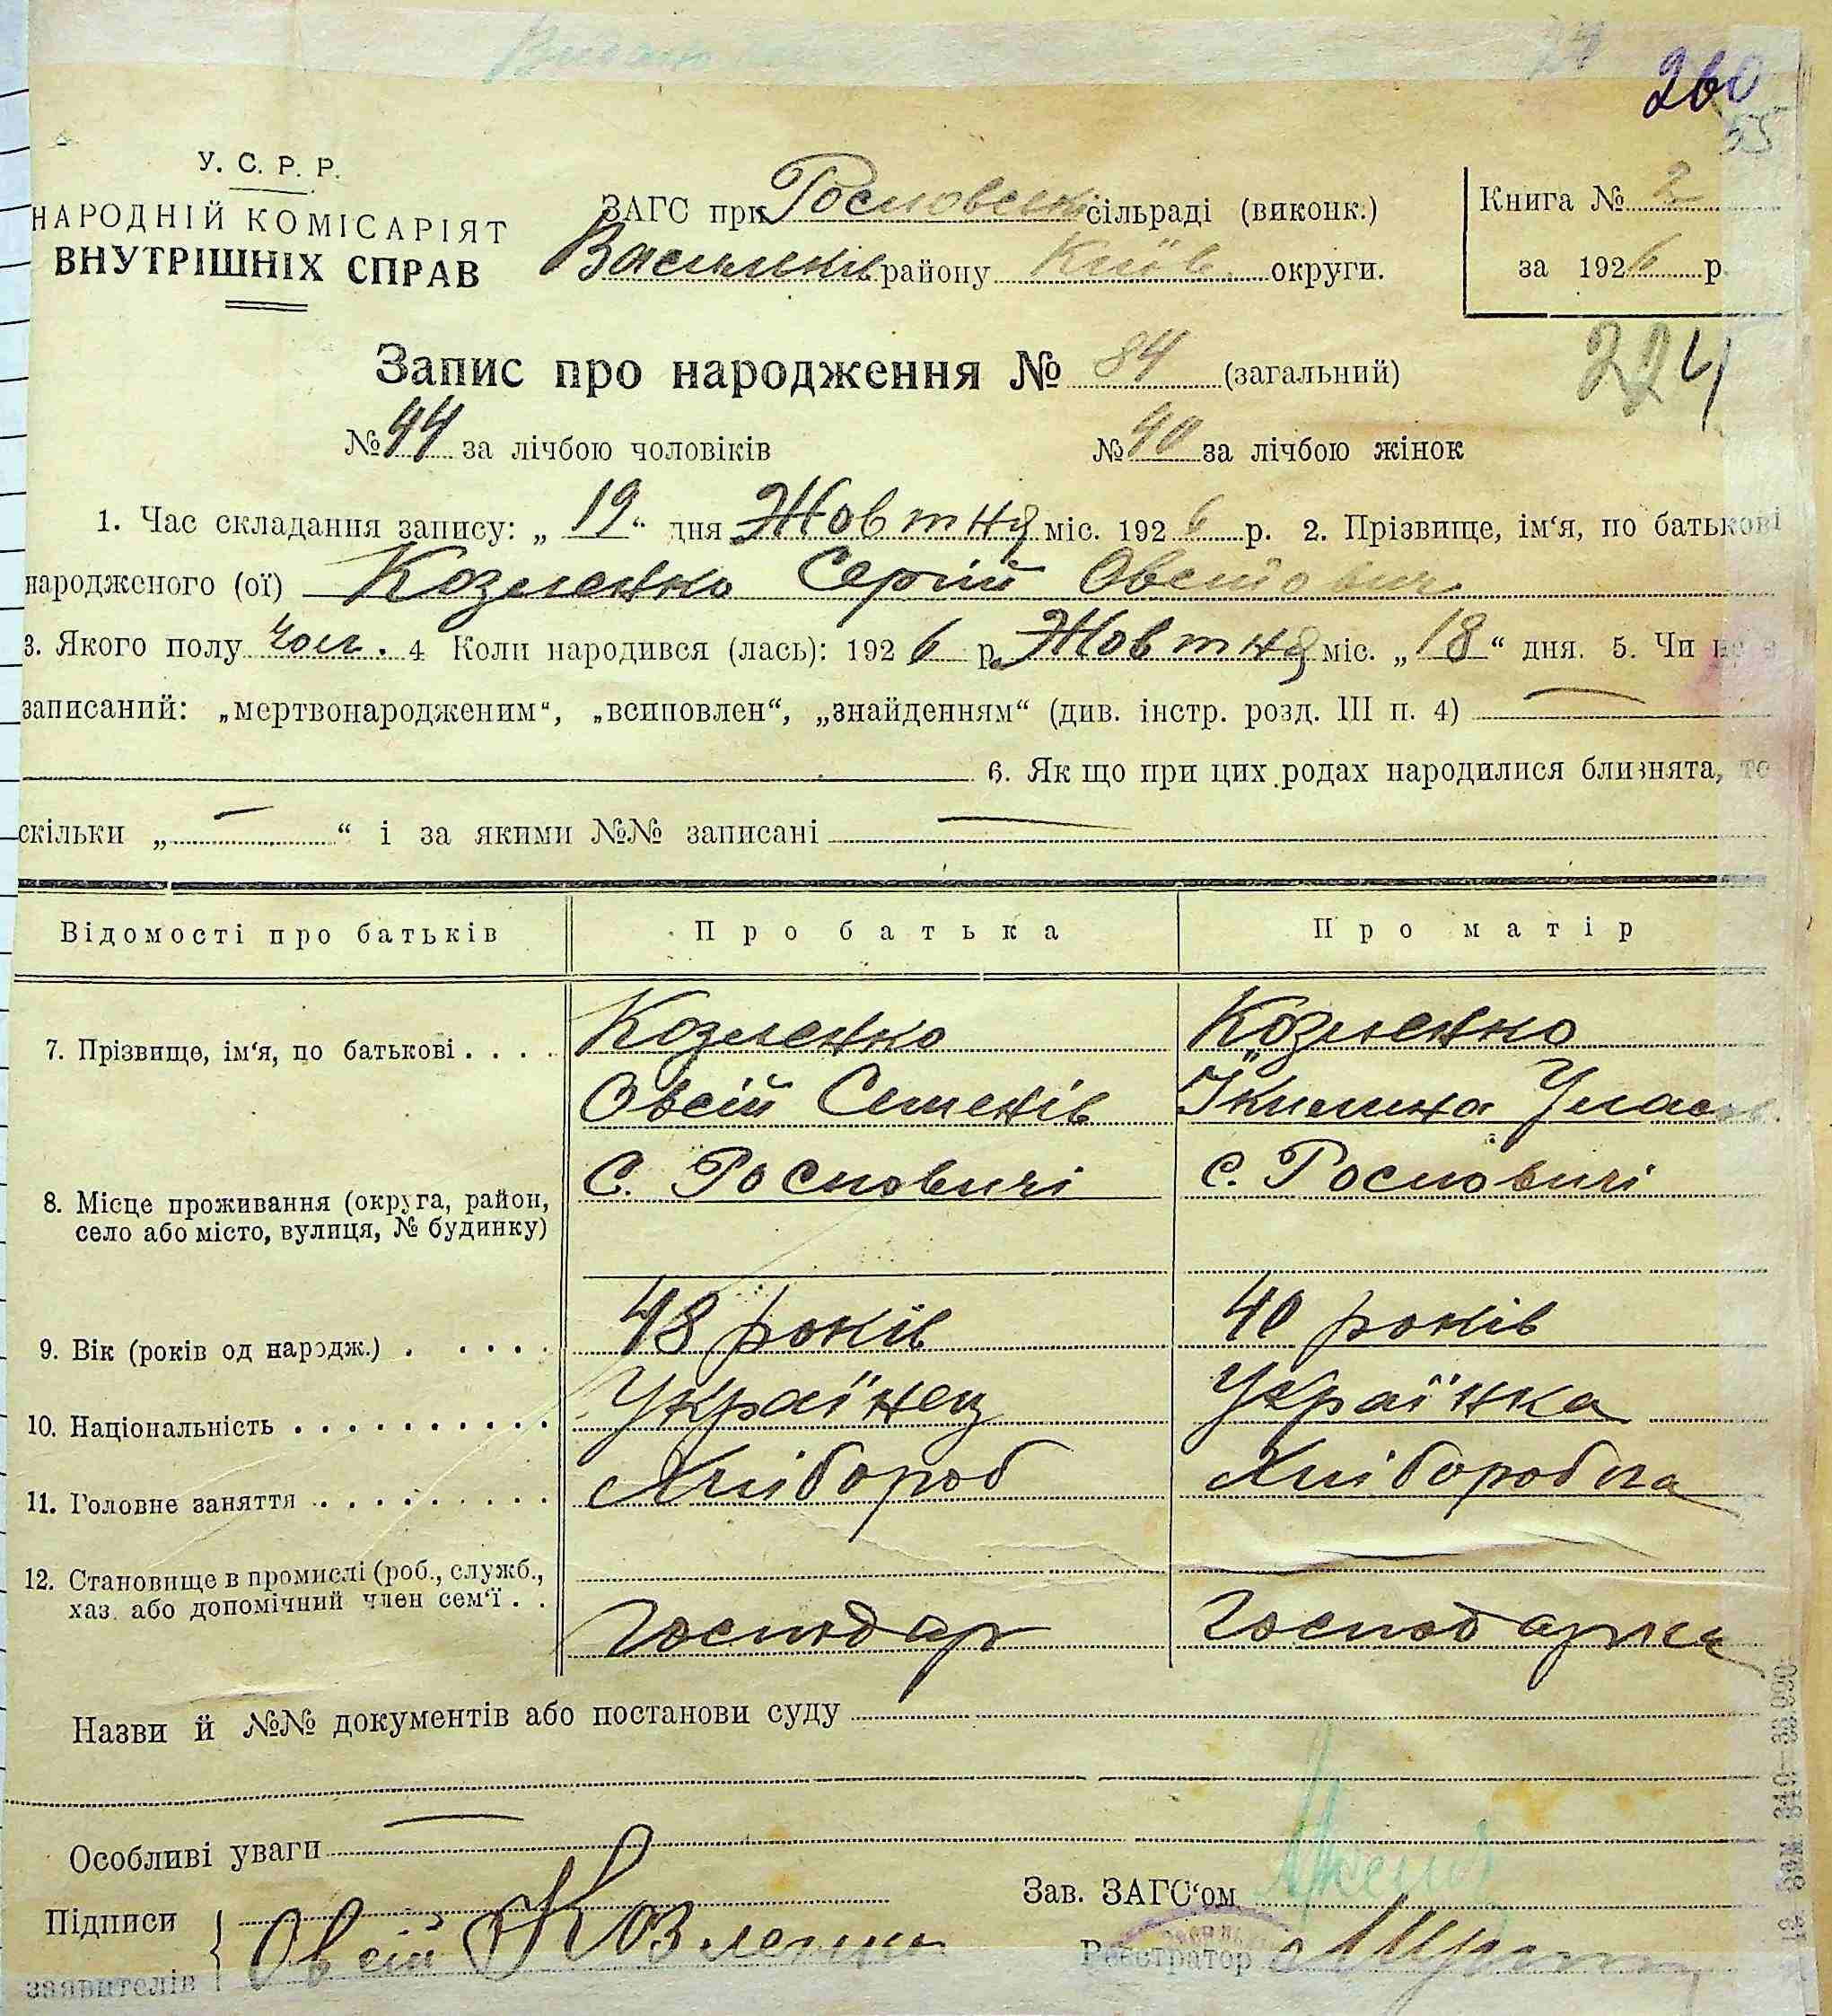 260
55
У. С. Р. Р.
НАРОДНІЙ КОМІСАРІЯТ
ВНУТРІШНІХ СПРАВ
ЗАГС при Росновськ сільраді (виконк.)
Васильків району Київ. округи.
Книга № 2
за 1926 р.
Запис про народження № 84 (загальний)
224
№ 44 за лічбою чоловіків № 40 за лічбою жінок
1. Час складання запису: „19“ дня Жовтня міс. 1926 р. 2. Прізвище, ім‘я, по батькові
народженого (ої) Козленко Сергій Овсійович
3. Якого полу чол. 4 Коли народився (лась): 1926 р. Жовтня міс. „18“ дня. 5. Чи не є
записаний: „мертвонародженим“, „всиновлен“, „знайденням“ (див. інстр. розд. III п. 4) —
6. Як що при цих родах народилися близнята, то
скільки „—“ і за якими №№ записані —
Відомості про батьків Про батька Про матір
7. Прізвище, ім‘я, по батькові . . . . Козленко Козленко
Овсій Семенів Якилина Улас
8. Місце проживання (округа, район, с. Росновичі с. Росновичі
село або місто, вулиця, № будинку)
9. Вік (років од народж.) . . . . . 48 років 40 років
10. Національність . . . . . . . . . . Українец Українка
11. Головне заняття . . . . . . . . . Хлібороб Хліборобка
12. Становище в промислі (роб., служб.,
хаз. або допомічний член сем‘ї . . Господар Господарка
Назви й №№ документів або постанови суду
Особливі уваги —
Підписи
заявителів Овсій Козленко
Зав. ЗАГС‘ом
Реєстратор